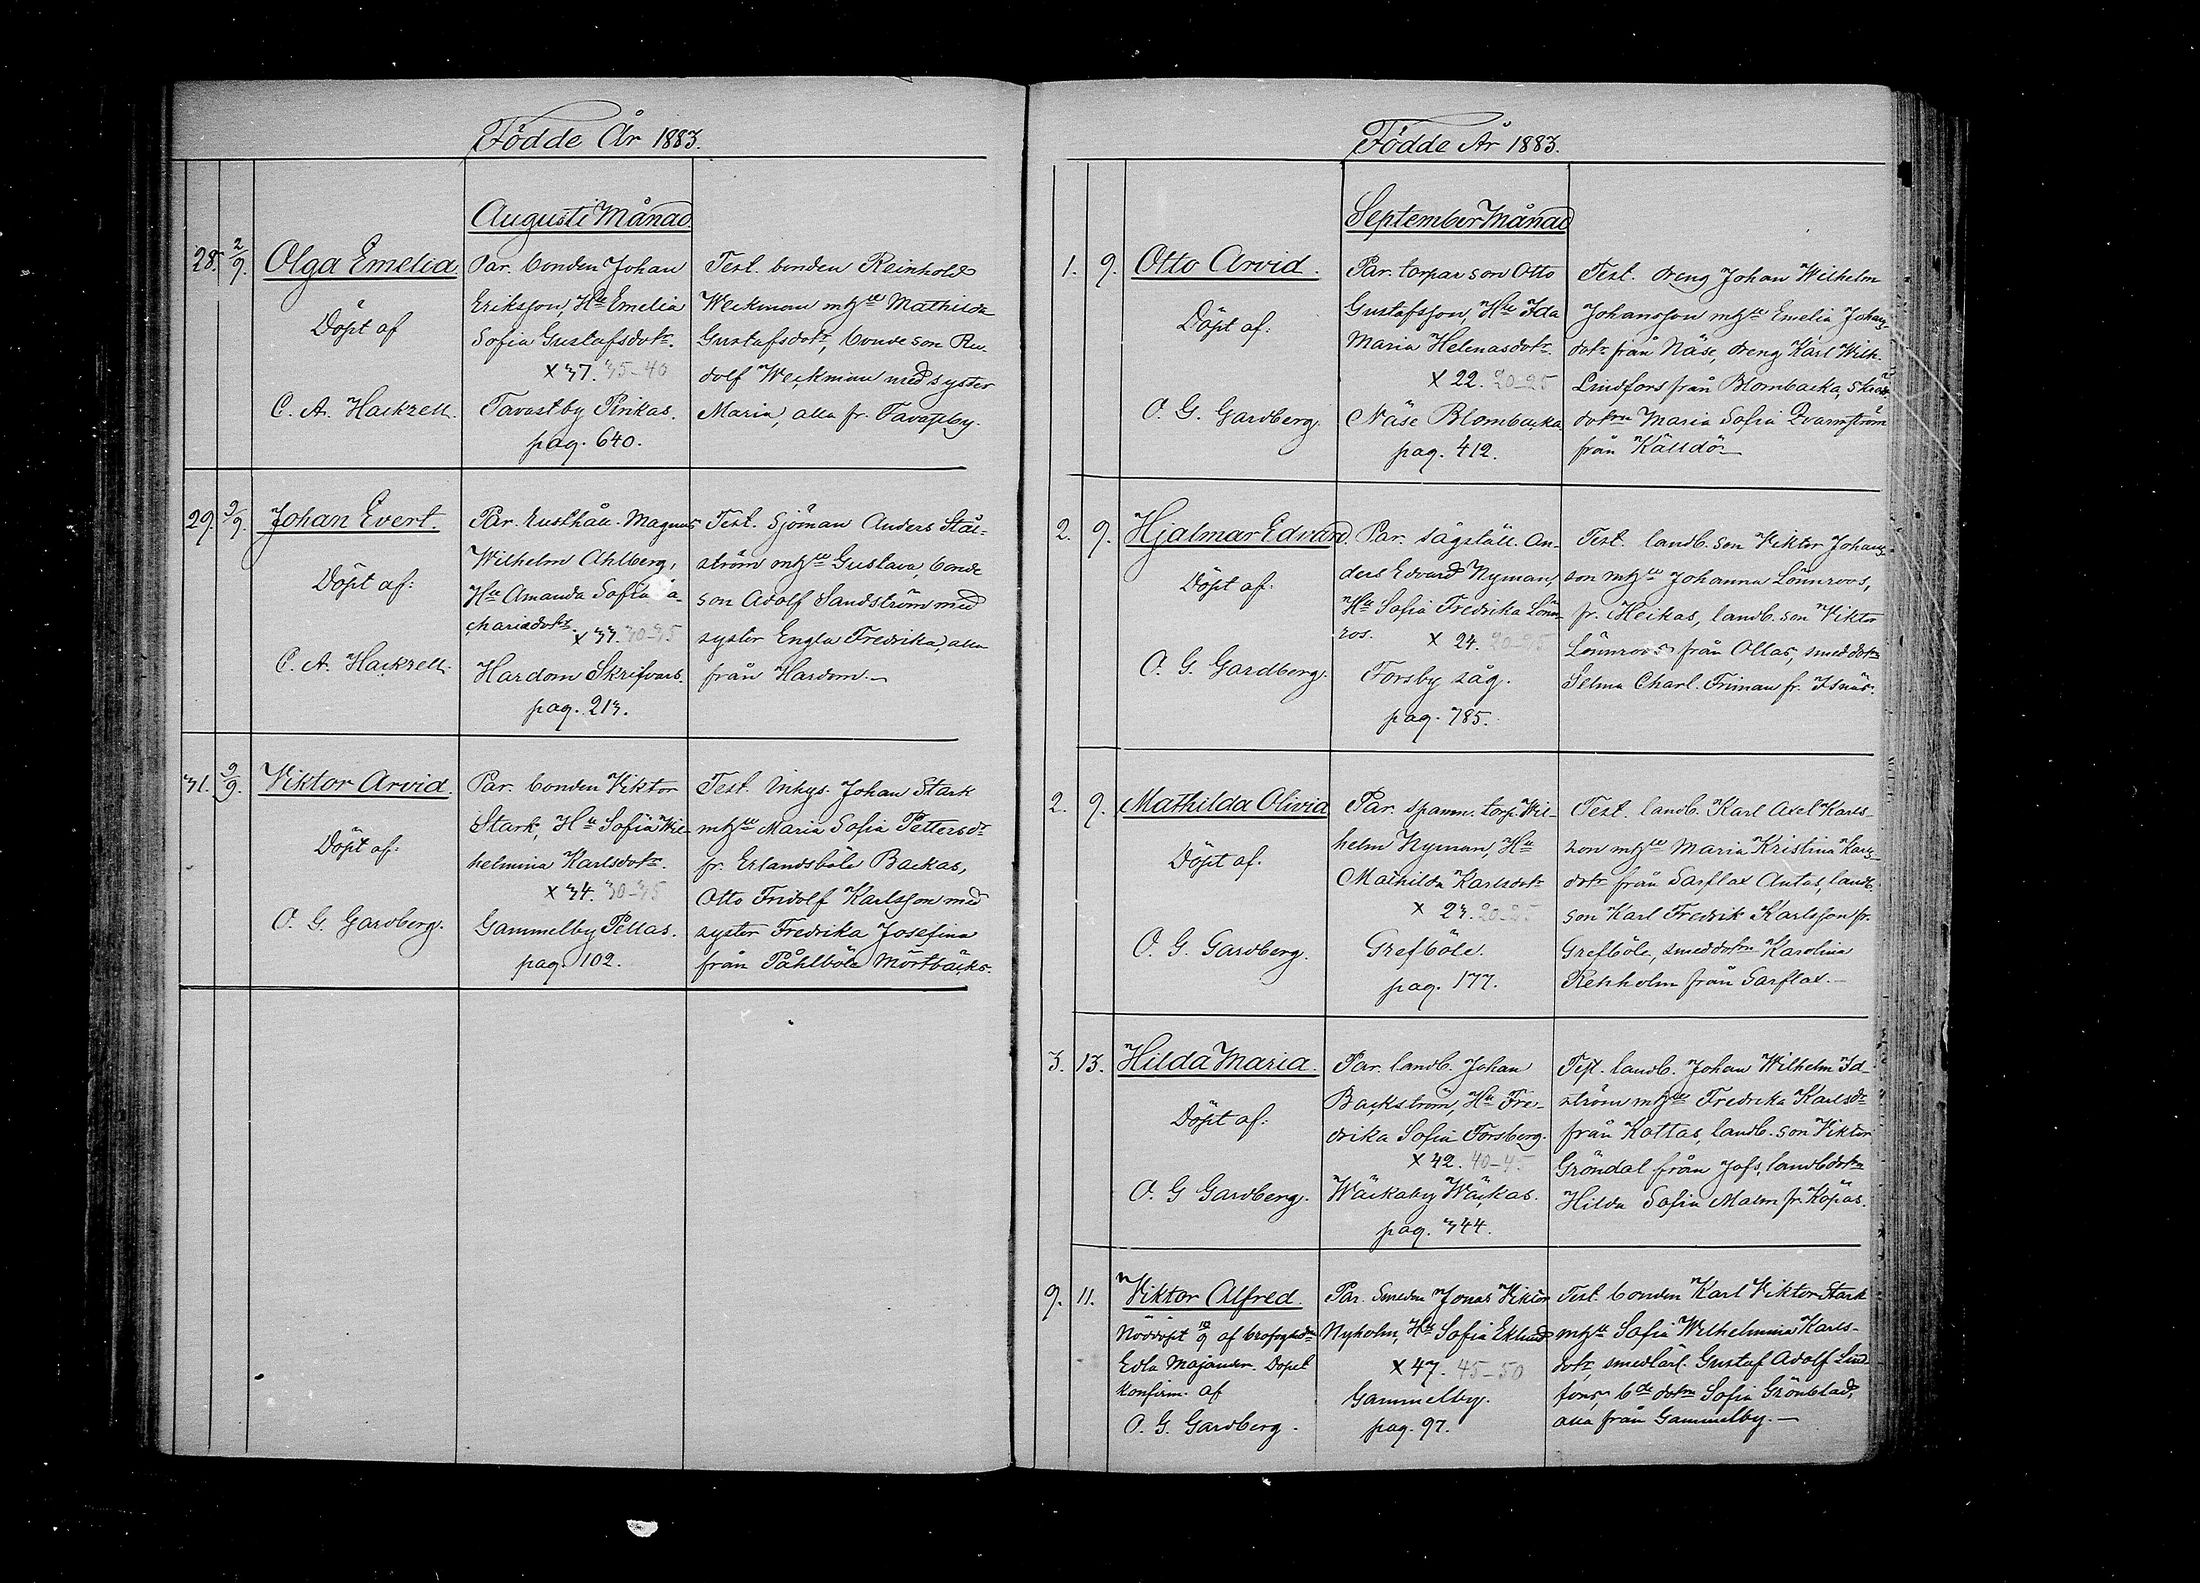 Födde År 1883.
Augusti Månad
28. 2/9. Olga Emelia
Döpt af
C. A. Hackzell.
Par. bonden Johan
Eriksson, Hu Emelia
Sofia Gustafsdotr.
x 37. 35-40
Tavastby Pirikas.
pag. 640.
Test. bonden Reinhold
Weckman mhu Mathilda
Gustafsdotr, bondeson Ru-
dolf Weckman med syster
Maria, alla fr. Tavastby.
29. 2/9. Johan Evert.
Döpt af:
C. A. Hackzell.
Par. Rusthåll. Magnus
Wilhelm Ahlberg,
Hu Amanda Sofia
chariasdotr.
x 33. 30-35
Hardom Skrifvars.
pag. 213.
Test. Sjöman Anders Stål-
ström mhu Gustava, bonde
son Adolf Sandström med
syster Engla Fredrika, alla
från Hardom.—
31. 9/9. Viktor Arvid.
Döpt af:
O. G. Gardberg.
Par. bonden Viktor
Stark, Hu Sofia Wil-
helmina Karlsdotr.
x 34. 30-35
Gammelby Pellas.
pag. 102.
Test. Inhys. Johan Stark
mhu Maria Sofia Pettersdr
fr. Erlandsböle Backas,
Otto Fridolf Karlsson med
syster Fredrika Josefina
från Påhlböle Mörtbäcks.
Födde År 1883.
September Månad
1. 9. Otto Arvid.
Döpt af:
O. G. Gardberg.
Par. torpar son Otto
Gustafsson, Hu Ida
Maria Helenasdotr.
x 22. 20-25
Näse Blombacka
pag. 412.
Test. dreng Johan Wilhelm
Johansson mhu Emelia Johans
dotr från Näse, dreng Karl Wilh.
Lindfors från Blombacka,
dotren Maria Sofia Qvarnström
från Källdö.—
2. 9. Hjalmar Edvard
Döpt af:
O. G. Gardberg.
Par. sågställ. An-
ders Edvard Nyman,
Hu Sofia Fredrika Lönn-
ros.
x 24. 20-25
Forsby såg.
pag. 785.
Test. landb. son Viktor Johans-
son mhu Johanna Lönnroos,
fr. Heikas, landb. son Viktor
Lönnroos från Ollas, smed dotrn
Selma Charl. Friman fr. Isnäs.
2. 9. Mathilda Olivia
Döpt af.
O. G. Gardberg.
Par. spanm. torp. Wil-
helm Nyman, Hu
Mathilda Karlsdotr
x 23. 20-25
Grefböle.
pag. 177.
Test. landb. Karl Axel Karls-
son mhu Maria Kristina Karls-
dotr från Sarflax Antas, landb.
son Karl Fredrik Karlsson fr.
Grefböle, smeddotrn Karolina
Rehnholm från Sarflax.—
3. 13. Hilda Maria.
Döpt af:
O. G Gardberg.
Par. landb. Johan
Backström, Hu Fre-
drika Sofia Forsberg.
x 42. 40-45
Wäckaby Wäckas.
pag. 344.
Test. landb. Johan Wilhelm Id-
ström mhu Fredrika Karlsdr
från Kottas, landb. son Viktor
Gröndal från Jofs, landbdotrn
Hilda Sofia Malm fr. Köpas.
9. 11. Viktor Alfred.
Nöddöpt 10/9 af brofogdedn
Edla Majander. Dopet
konfirm. af
O. G. Gardberg.
Par. Smeden Jonas Viktor
Nyholm, Hu Sofia Eklund
x 47. 45-50
Gammelby.
pag. 97.
Test. bonden Karl Viktor Stark
mhu Sofia Wilhelmina Karls-
dotr, smedlärl. Gustaf Adolf Lind
fors, bde dotrn Sofia Grönblad,
alla från Gammelby.—